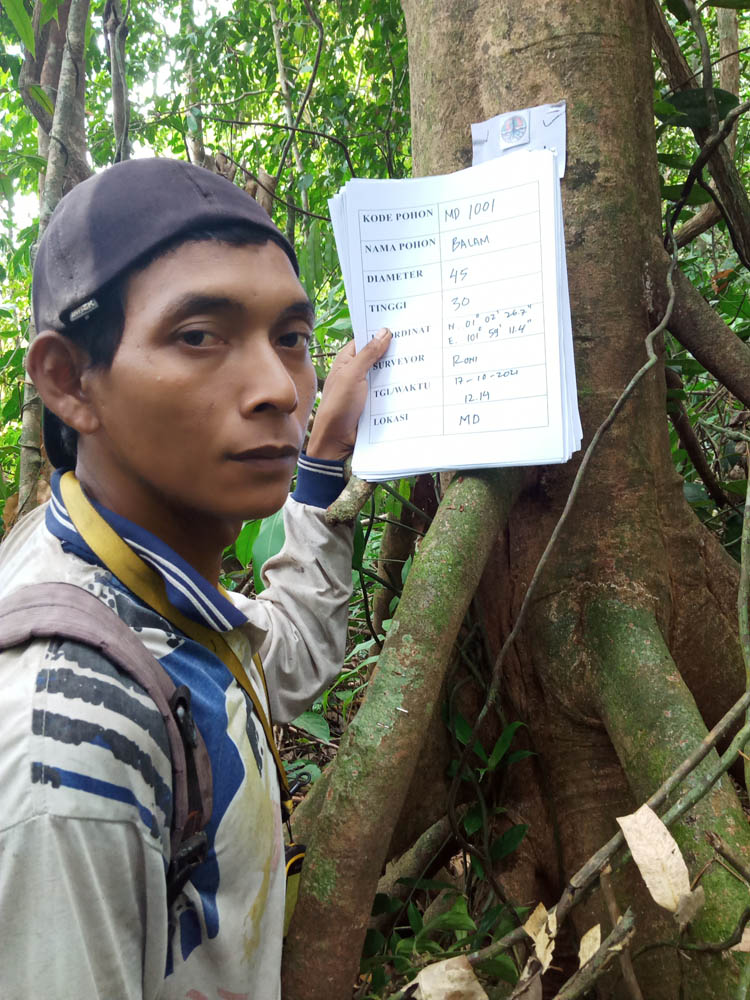 KODE POHON MD 1001
NAMA POHON BALAM
DIAMETER 45
TINGGI 30
ORDINAT N. 01° 02' 26.7"
E. 101° 59' 11.4"
SURVEYOR ROMI
TGL/WAKTU 17-10-2021
12.14
LOKASI MD